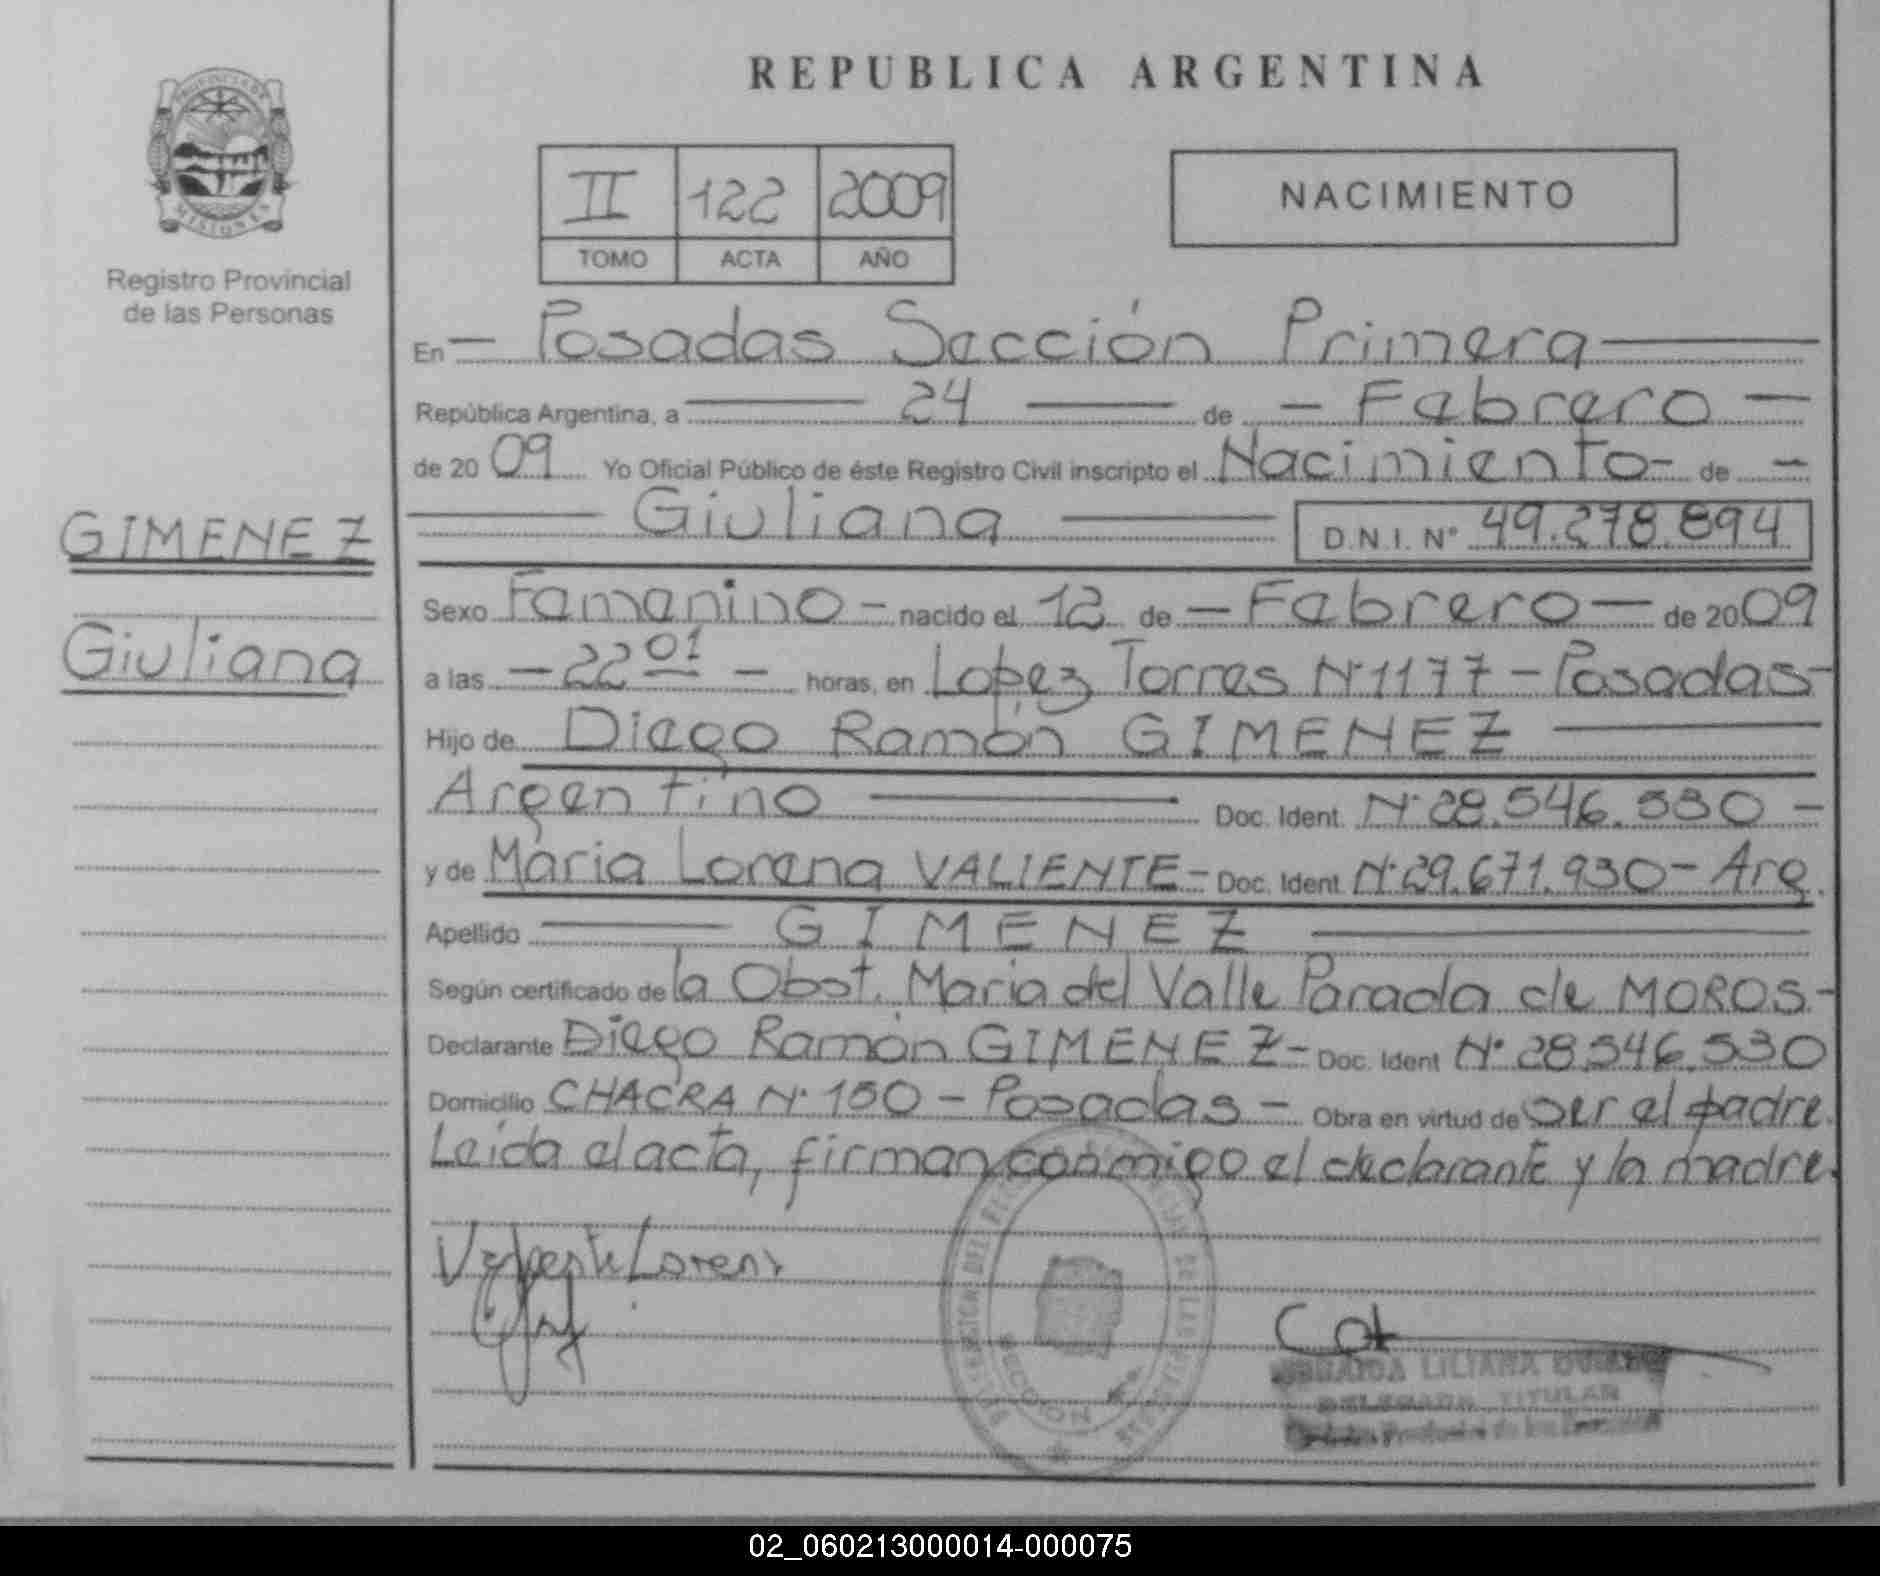 REPUBLICA ARGENTINA
PROVINCIA DE
MISIONES
Registro Provincial
de las Personas
II 122 2009
TOMO ACTA AÑO
NACIMIENTO
En – Posadas Sección Primera
República Argentina, a 24 de – Febrero –
de 20 09 Yo Oficial Público de éste Registro Civil inscripto el Nacimiento – de –
Giuliana D.N.I. Nº 49.278.894
GIMENEZ
Giuliana
Sexo Femenino – nacido el 12 de – Febrero – de 2009
a las – 22 01 – horas, en Lopez Torres Nº 1177 – Posadas –
Hijo de Diego Ramón GIMENEZ
Argentino Doc. Ident. Nº 28.546.530 –
y de María Lorena VALIENTE – Doc. Ident. Nº 29.671.930 – Arg.
Apellido GIMENEZ
Según certificado de la Obst. Maria del Valle Parada de MOROS –
Declarante Diego Ramón GIMENEZ – Doc. Ident Nº 28.546.530
Domicilio CHACRA Nº 150 – Posadas – Obra en virtud de ser el padre.
Leída el acta, firman conmigo el declarante y la madre.
Valiente Lorena
SECCION
LILIANA
DELEGADA TITULAR
02_060213000014-000075